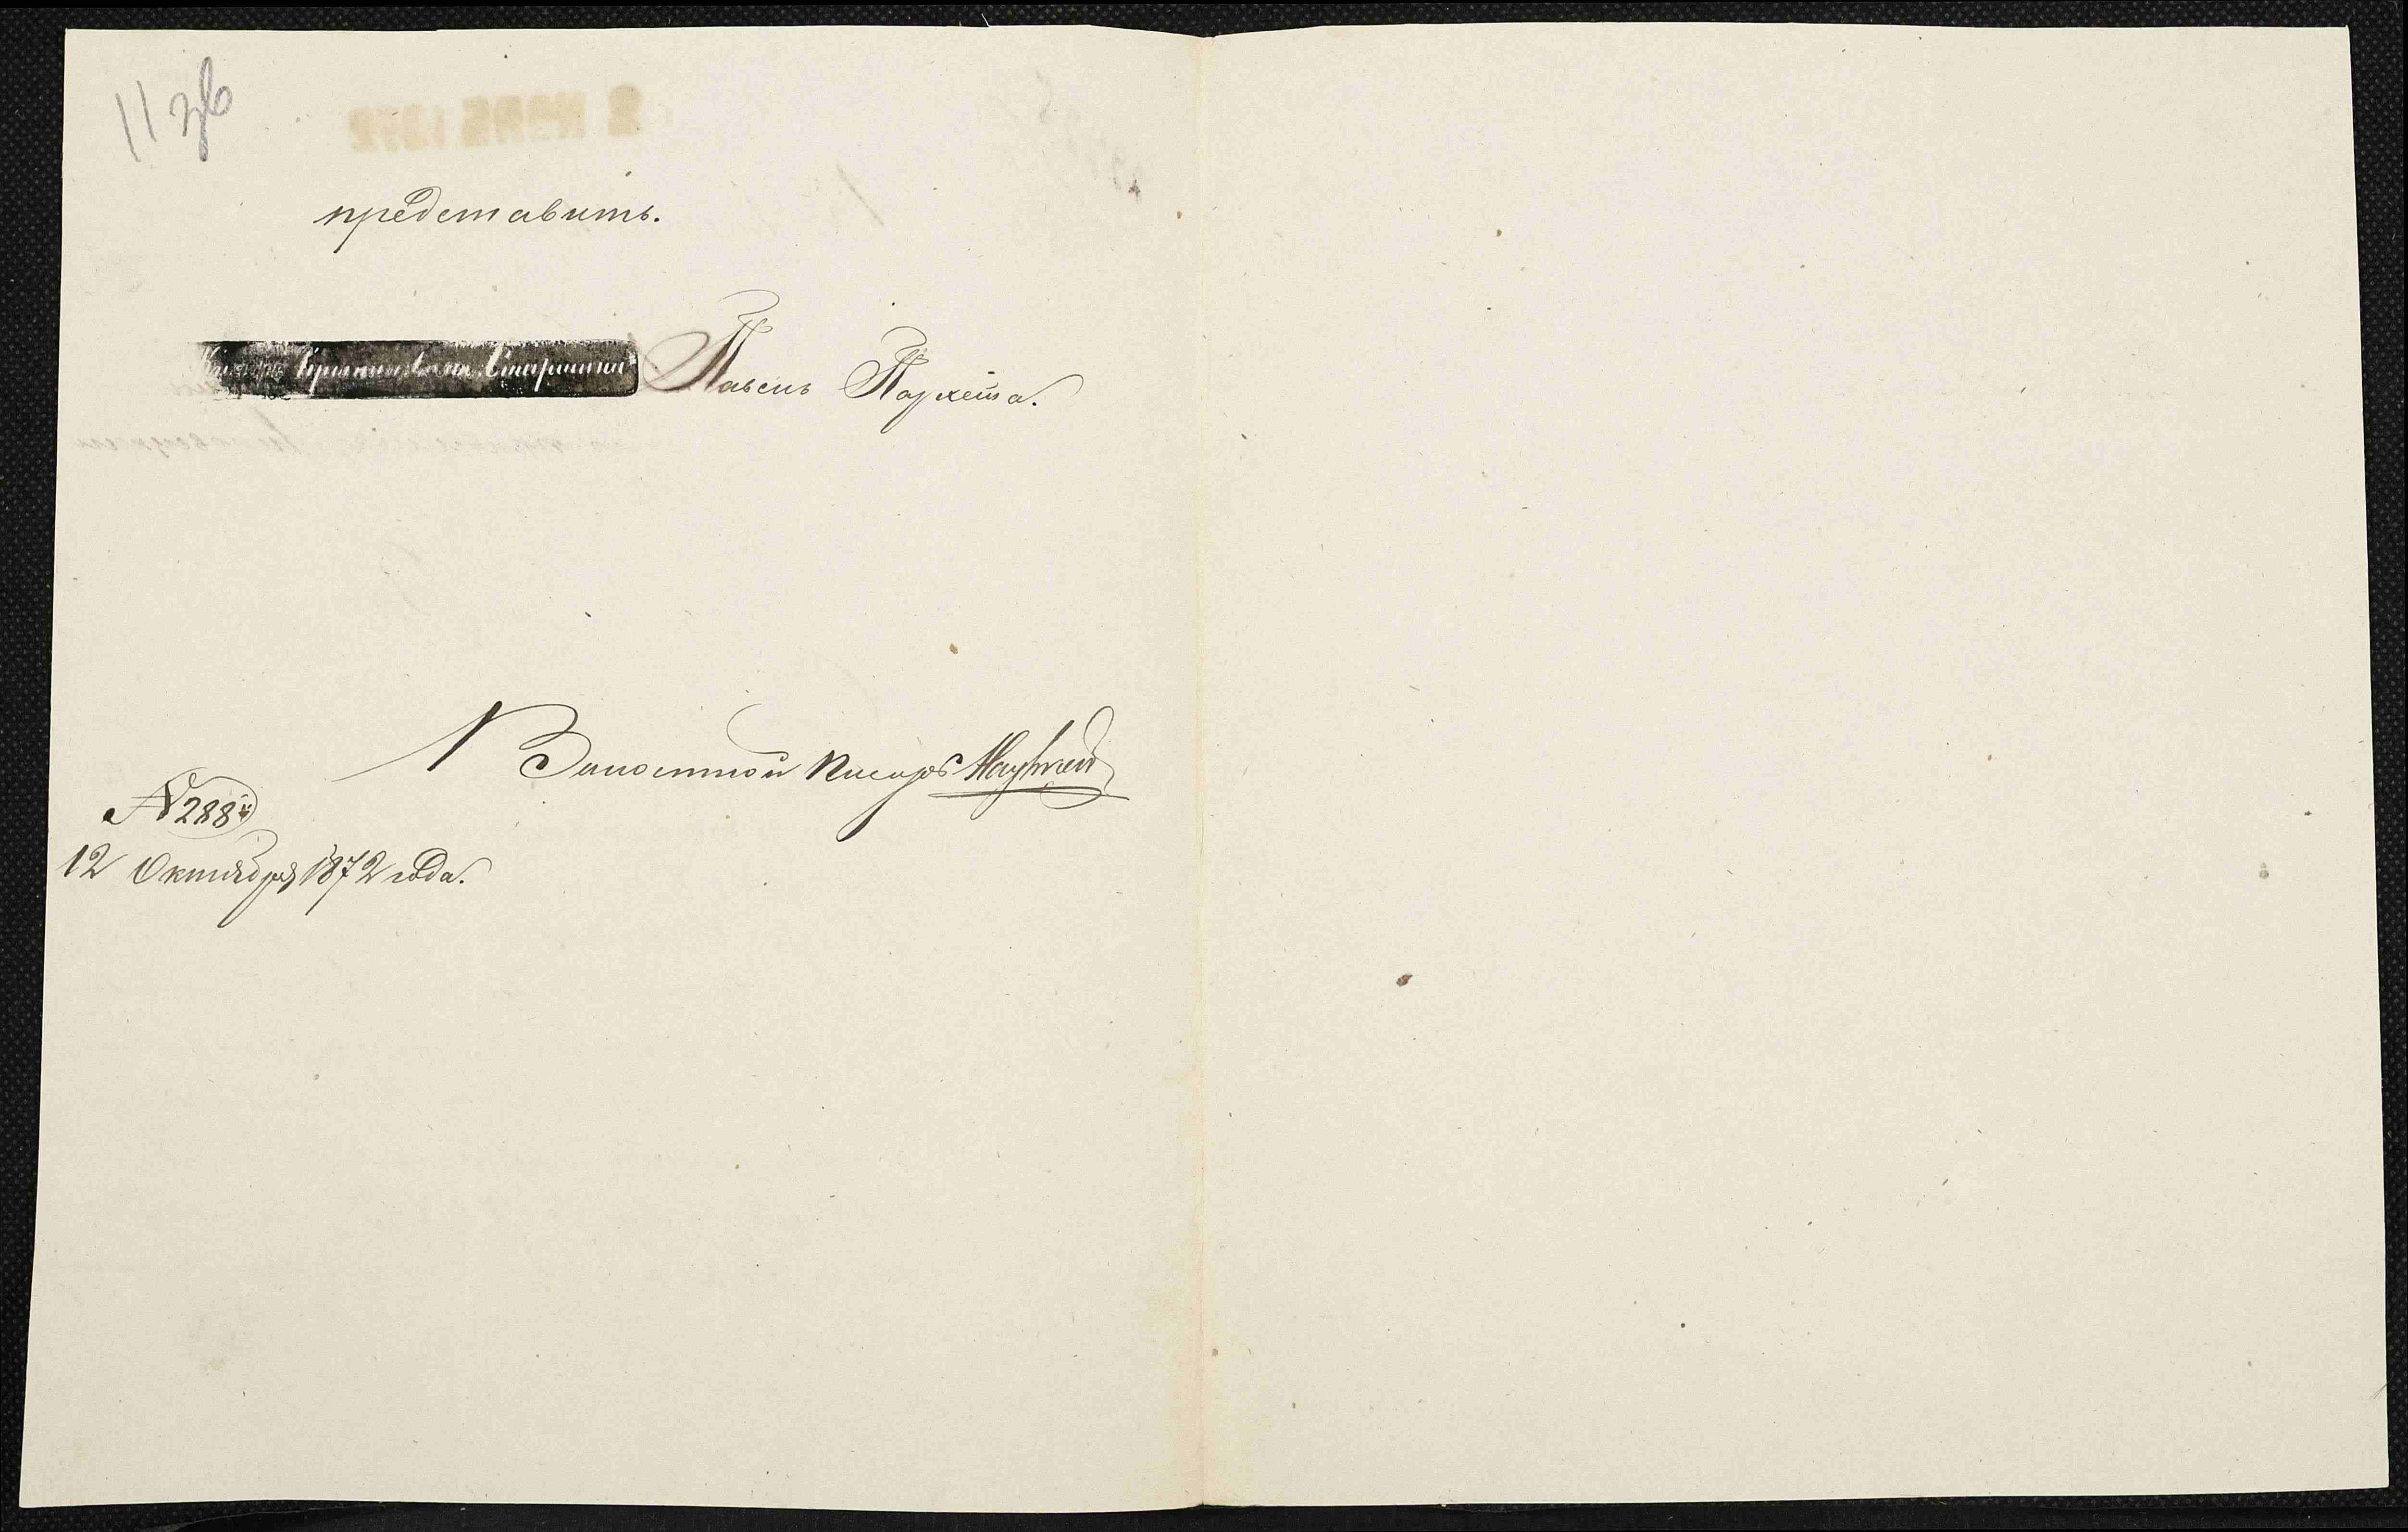 11 зв
представить.
Старшина Павелъ Пархета.
Волостной Писарь
№ 288
12 Октября 1872 года.